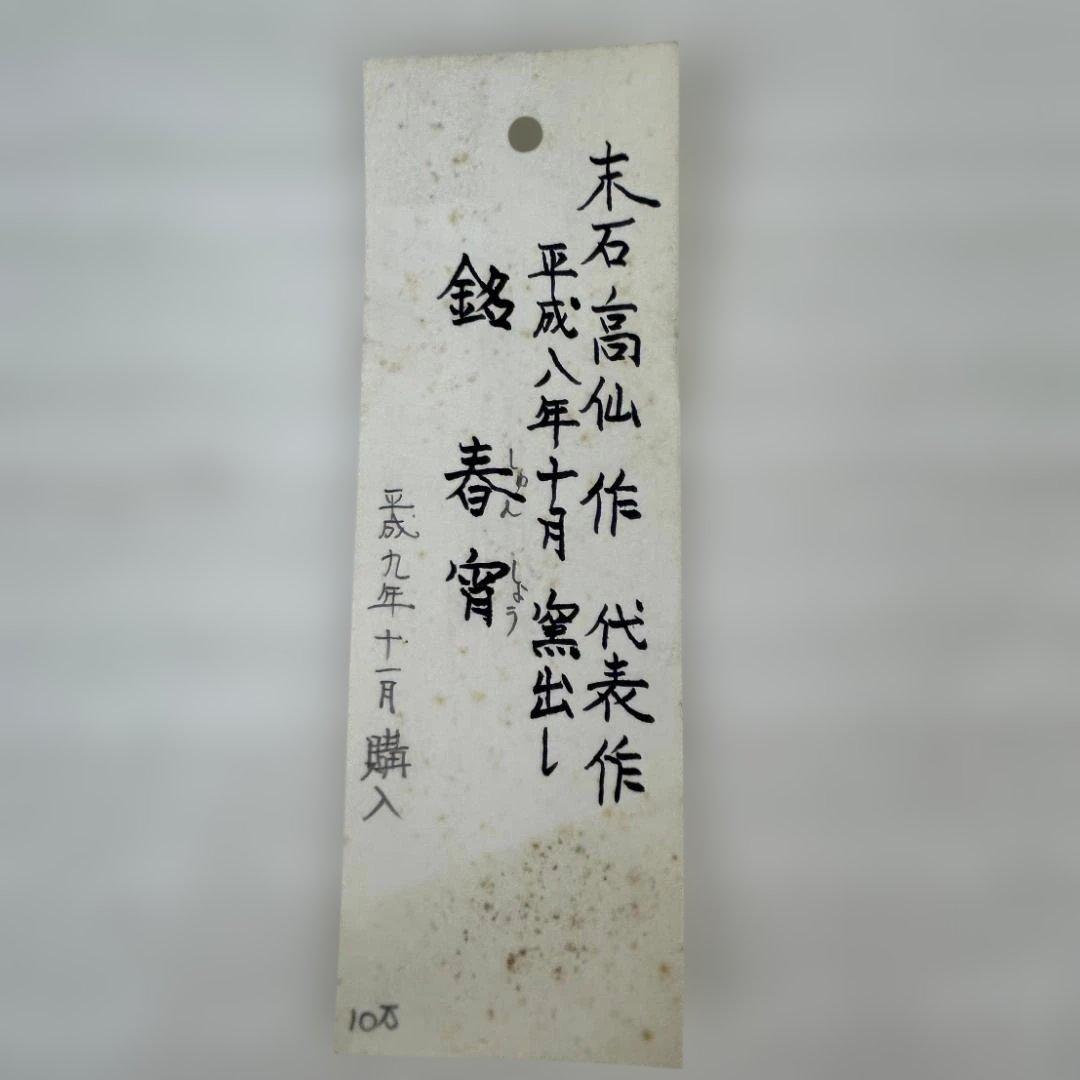 末石高仙作 代表作
平成八年十月 窯出し
銘 春宵
しゅん しょう
平成九年十一月 購入
10万